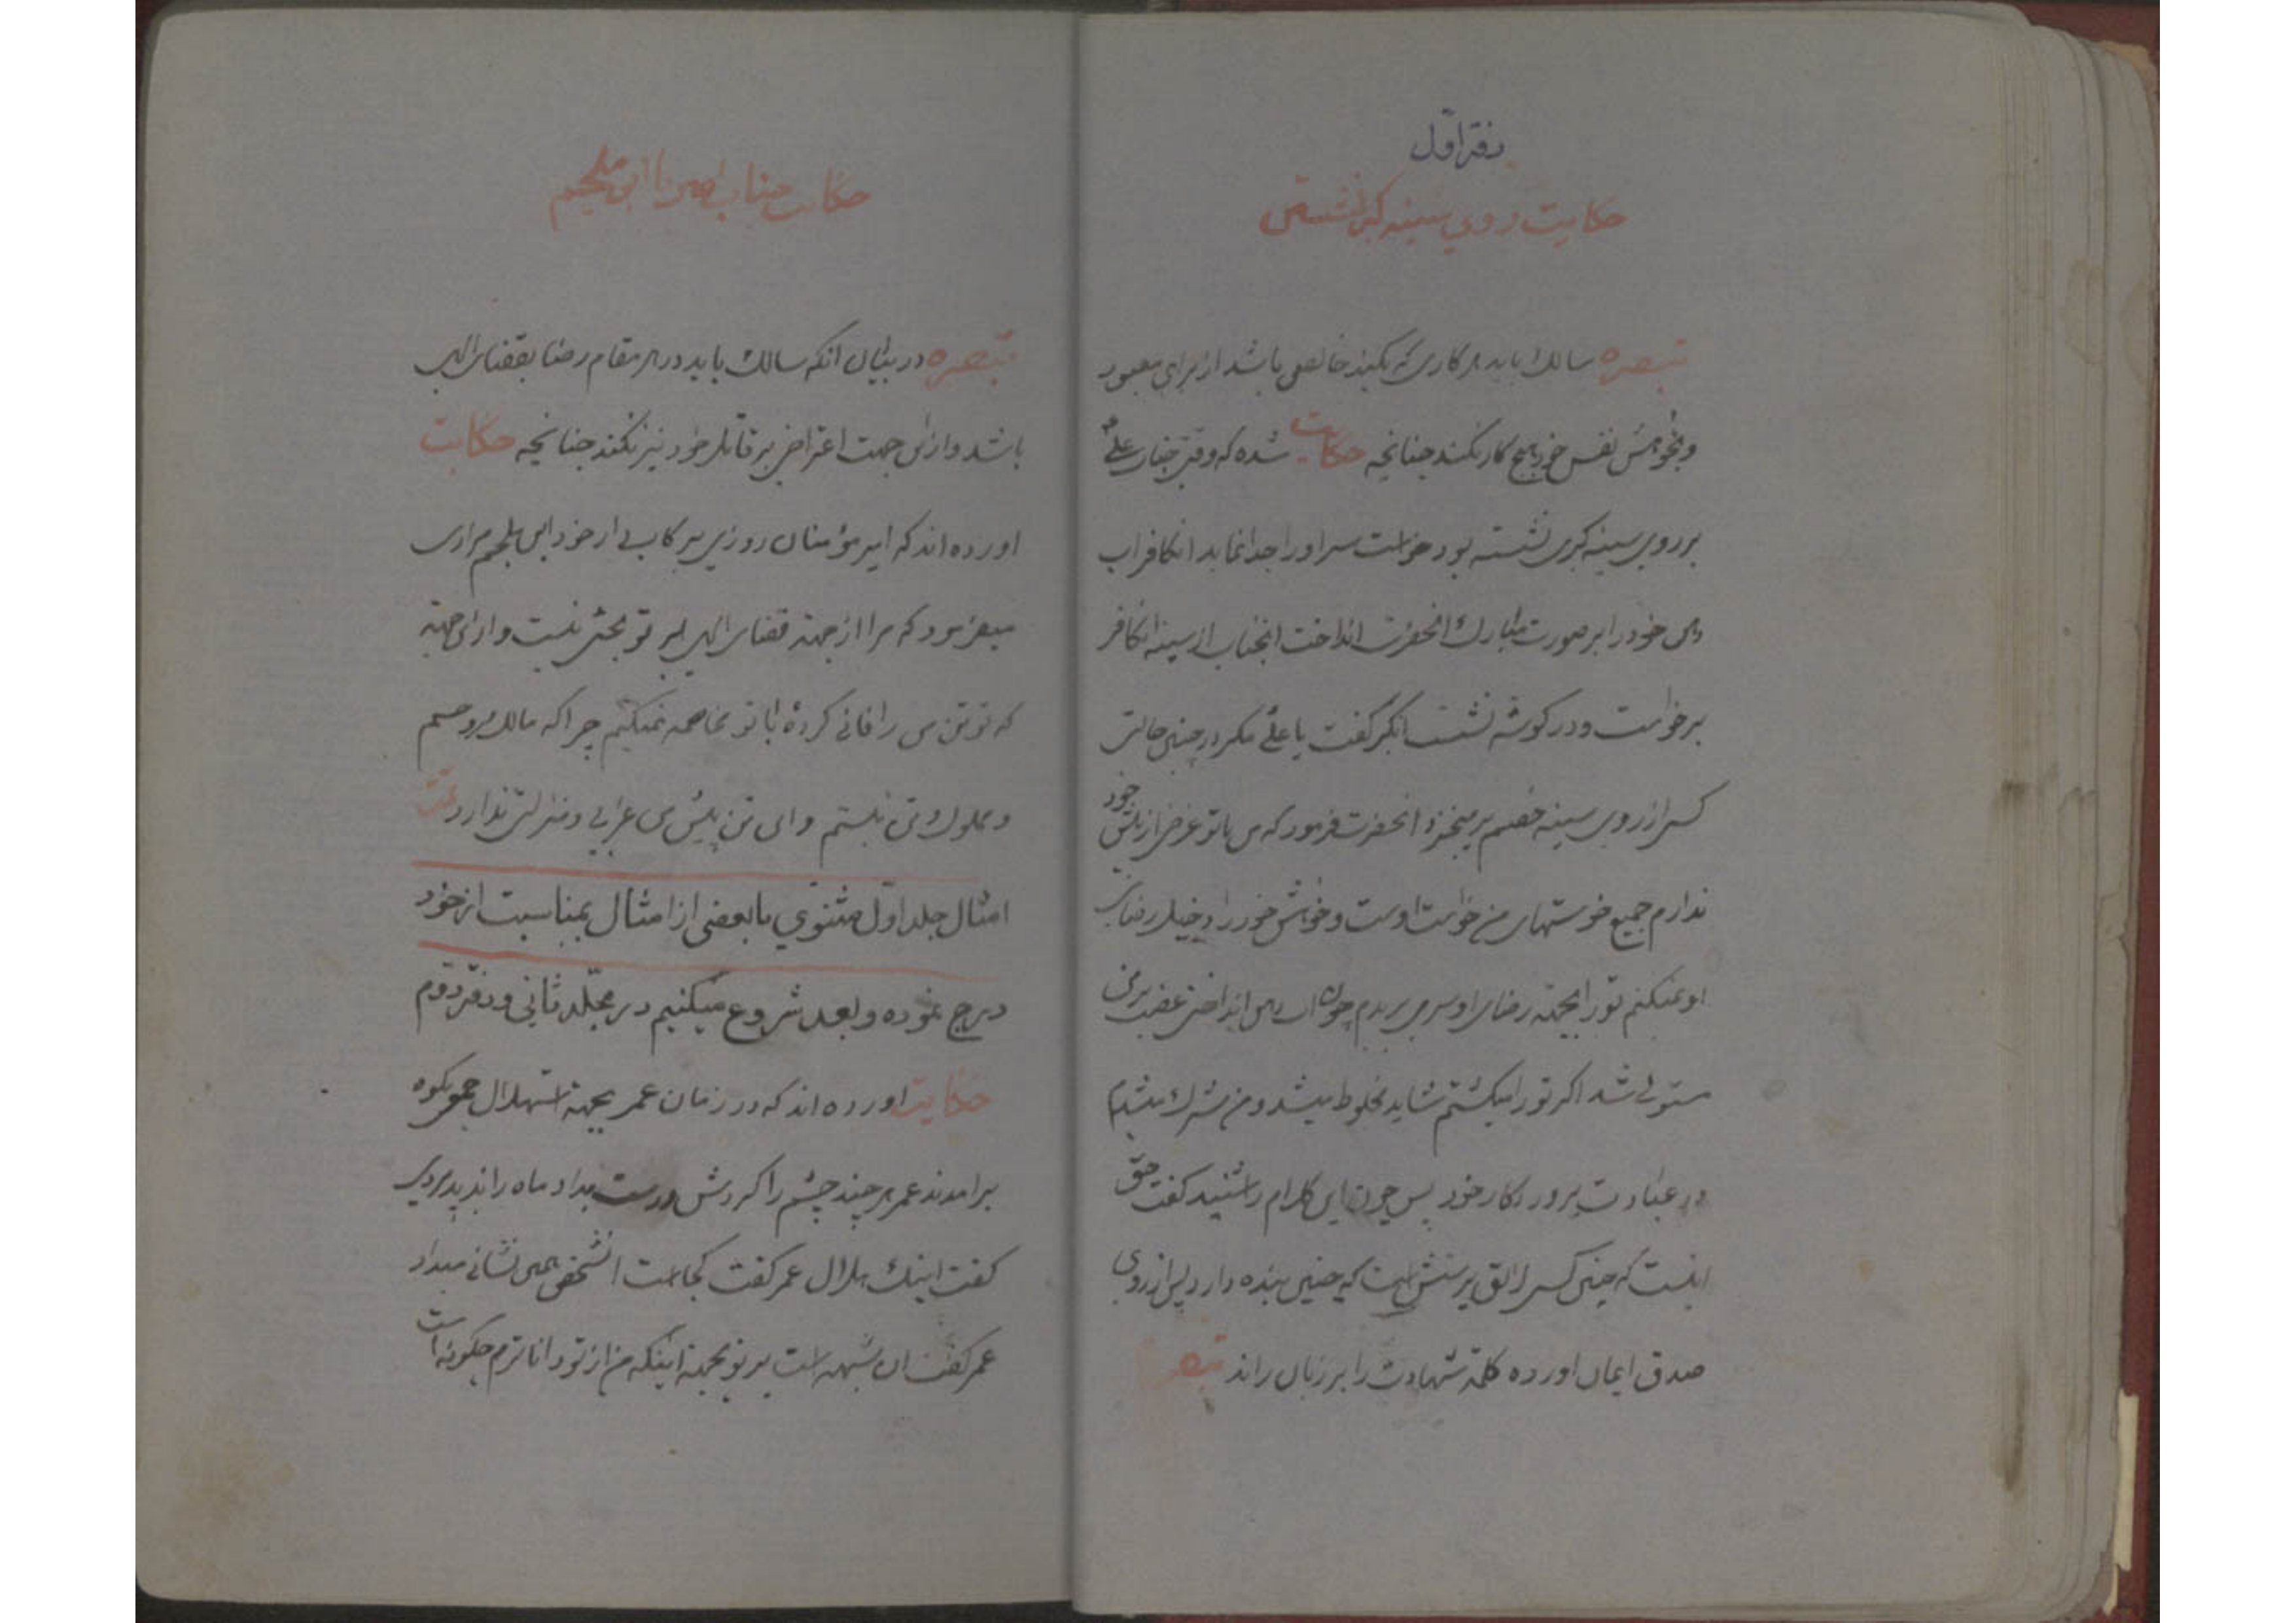 دفتر اوّل
حکایت روی سینه کبر نشستن
تبصره سالک باید هر کاری که بکند خالص باشد از برای معبود
و بخواهش نفس خود هیچ کار نکند چنانچه حکایت شده که وقتی جناب علی
بر روی سینه کبری نشسته بود خواست سر او را جدا نماید آن کافر آب
دهن خود را بر صورت مبارک آنحضرت انداخت آنجناب از سینه آن کافر
برخواست و در کوشه نشست آن کبر کفت یا علی مکر در چنین حالتی
کسی از روی سینه خصم برمیخیزد آنحضرت فرمود که من با تو غرض از پیش خود
ندارم جمیع خواستهای من خواست اوست و خواهش خود را دخیل رضای
او نمیکنم تو را بجهته رضای او سر می بریدم چون آب دهن انداختی غضب بر من
مستولی شد اکر تو را میکشتم شاید مخلوط میشد و من مشرک میشدم
در عبادت پرورردکار خود پس چون این کلام را شنید کفت حق
اینست که چنین کسی لایق پرستش است که چنین بنده دارد پس از روی
صدق ایمان آورده کلمه شهادت را بر زبان راند تبصره
حکایت جناب امیر با ابن ملجم
تبصره در بیان آنکه سالک باید در هر مقام رضا بقضای الهی
باشد و از این جهت اعتراض بر قاتل خود نیز نکند چنانچه حکایت
اورده اند که امیر مؤمنان روزی برکاب دار خود ابن ملجم مرادی
میفرمود که مرا از جهته قضای الهی بر تو بحثی نیست و از این جهته
که تو تن من را فانی کردهٔ با تو مخاصمه نمیکنم چرا که مالک روحم
و مملوک تن نیستم و این تن پیش من عزتی و منزلتی ندارد تمت
امثال جلد اوّل مثنوی با بعضی از امثال بمناسبت از خود
درج نموده و بعد شروع میکنیم در مجلّد ثانی و دفتر دوّم
حکایت اورده اند که در زمان عمر بجهته استهلال جمعی بکوه
برامدند عمر هر چند چشم را کردش میداد ماه را ندید مردی
کفت اینک هلال عمر کفت کجاست آنشخص همی نشانی میداد
عمر کفت ان شبهه است بر تو بجهته اینکه من از تو داناترم چکونه است